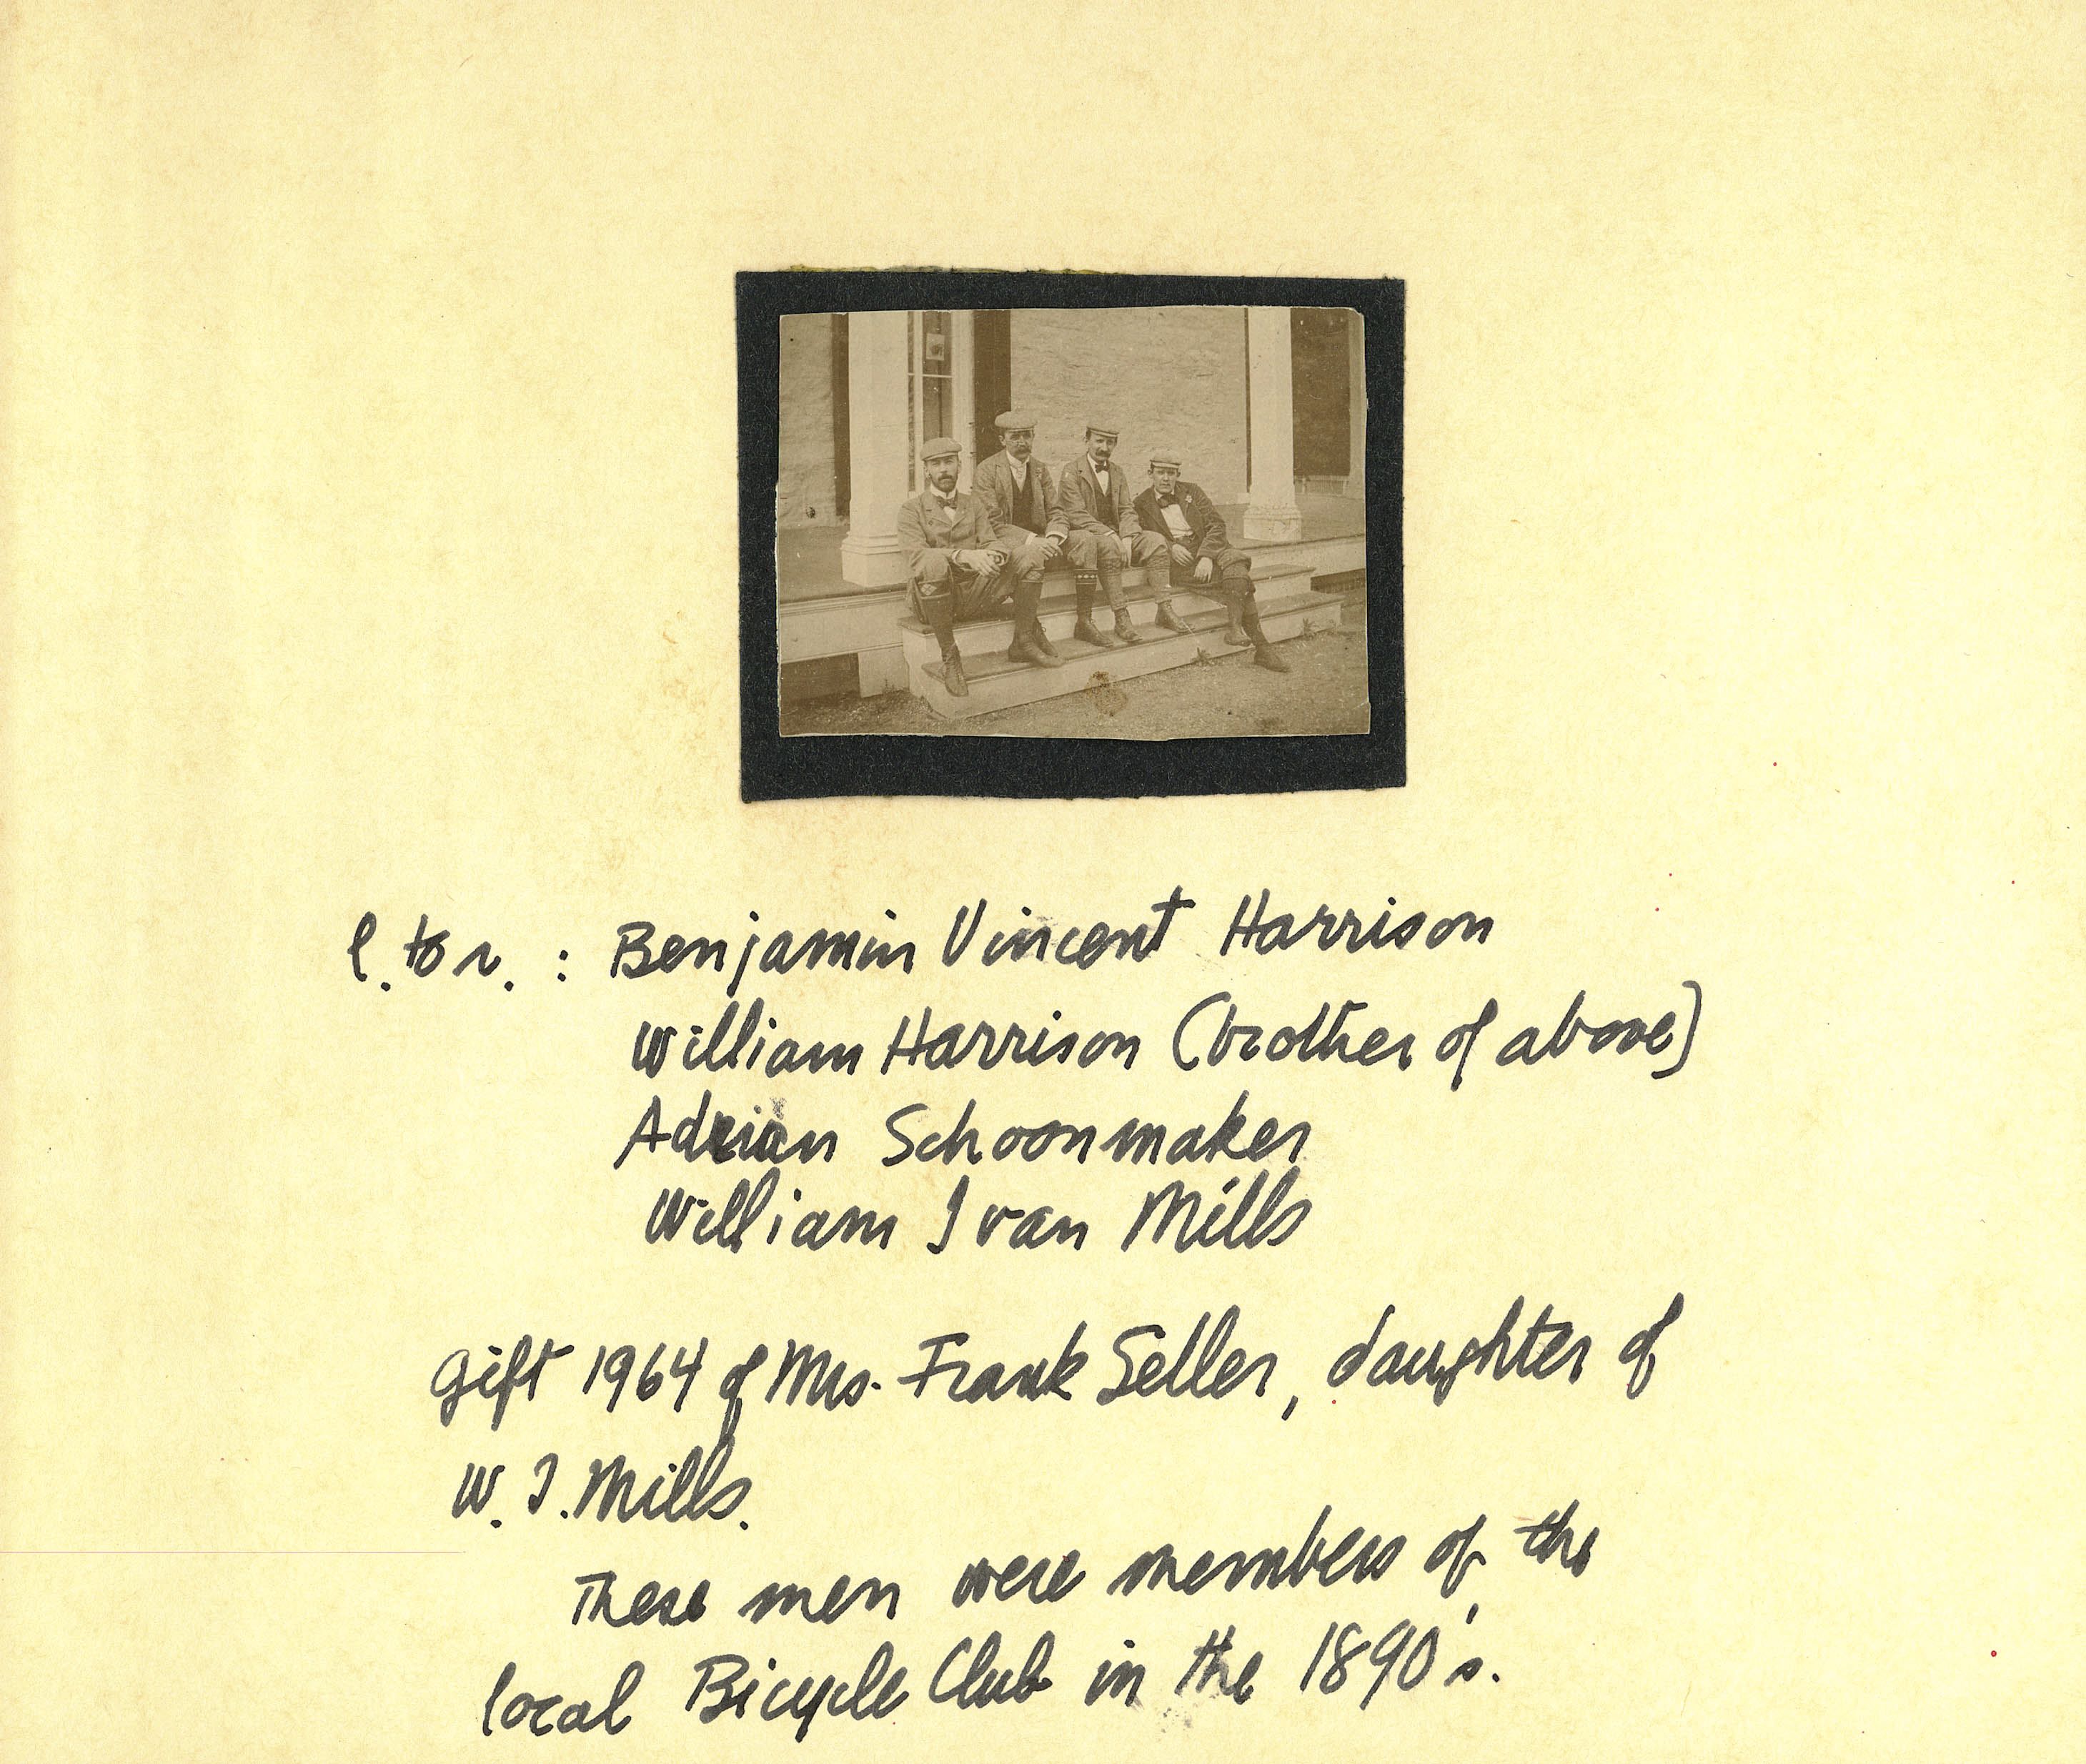 l. to r. : Benjamin Vincent Harrison
William Harrison (brother of above)
Adrian Schoonmaker
William Ivan Mills
Gift 1964 of Mrs. Frank Seller, daughter of
W. I. Mills.
These men were members of the
local Bicycle Club in the 1890's.